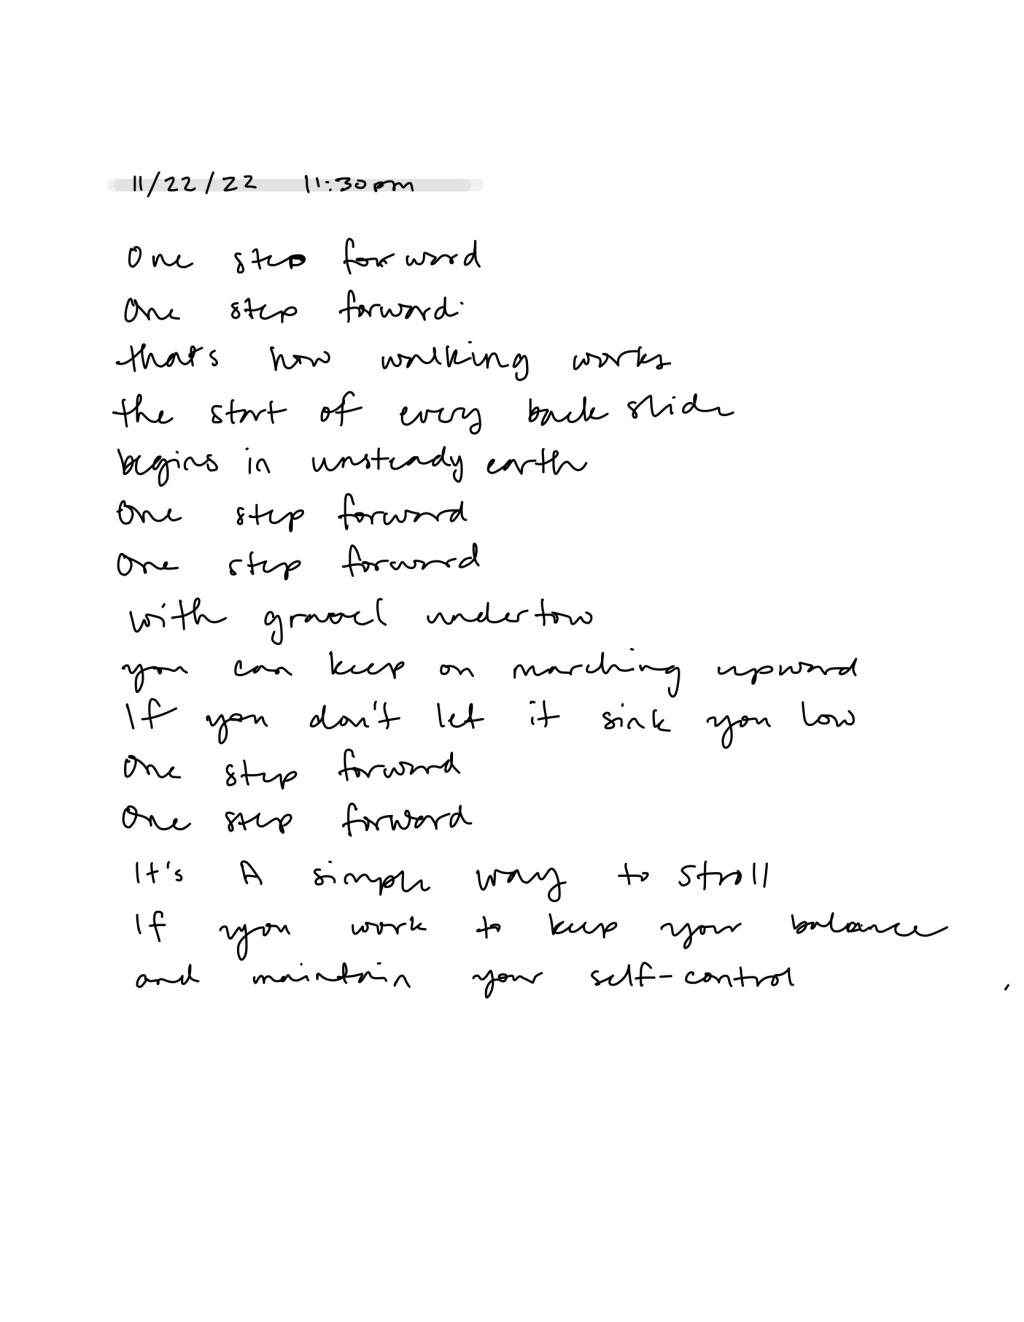 11/22/22 11:30pm
One step forward
One step forward
thats how walking works
the start of every back slide
begins in unsteady earth
One step forward
One step forward
with gravel undertow
you can keep on marching upward
If you don't let it sink you low
One step forward
One step forward
It's A simple way to stroll
If you work to keep your balance
and maintain your self-control